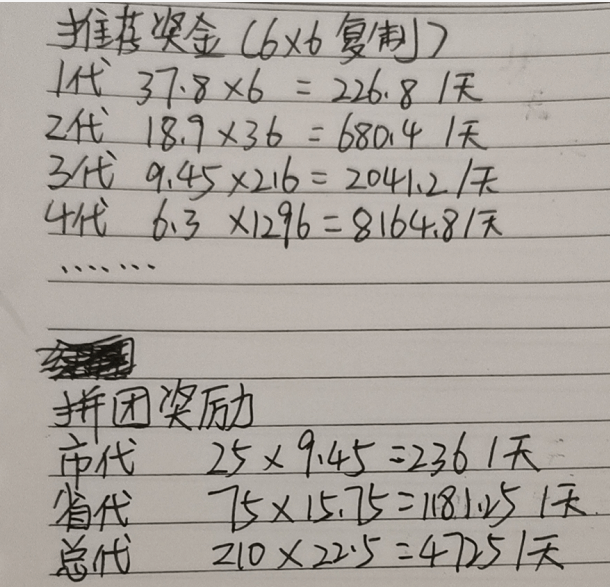 推荐奖金(6×6复制)
1代 37.8×6 = 226.8/天
2代 18.9×36 = 680.4/天
3代 9.45×216 = 2041.2/天
4代 6.3×1296 = 8164.8/天
.......
拼团奖励
市代 25×9.45=236/天
省代 75×15.75=1181.25/天
总代 210×22.5=4725/天